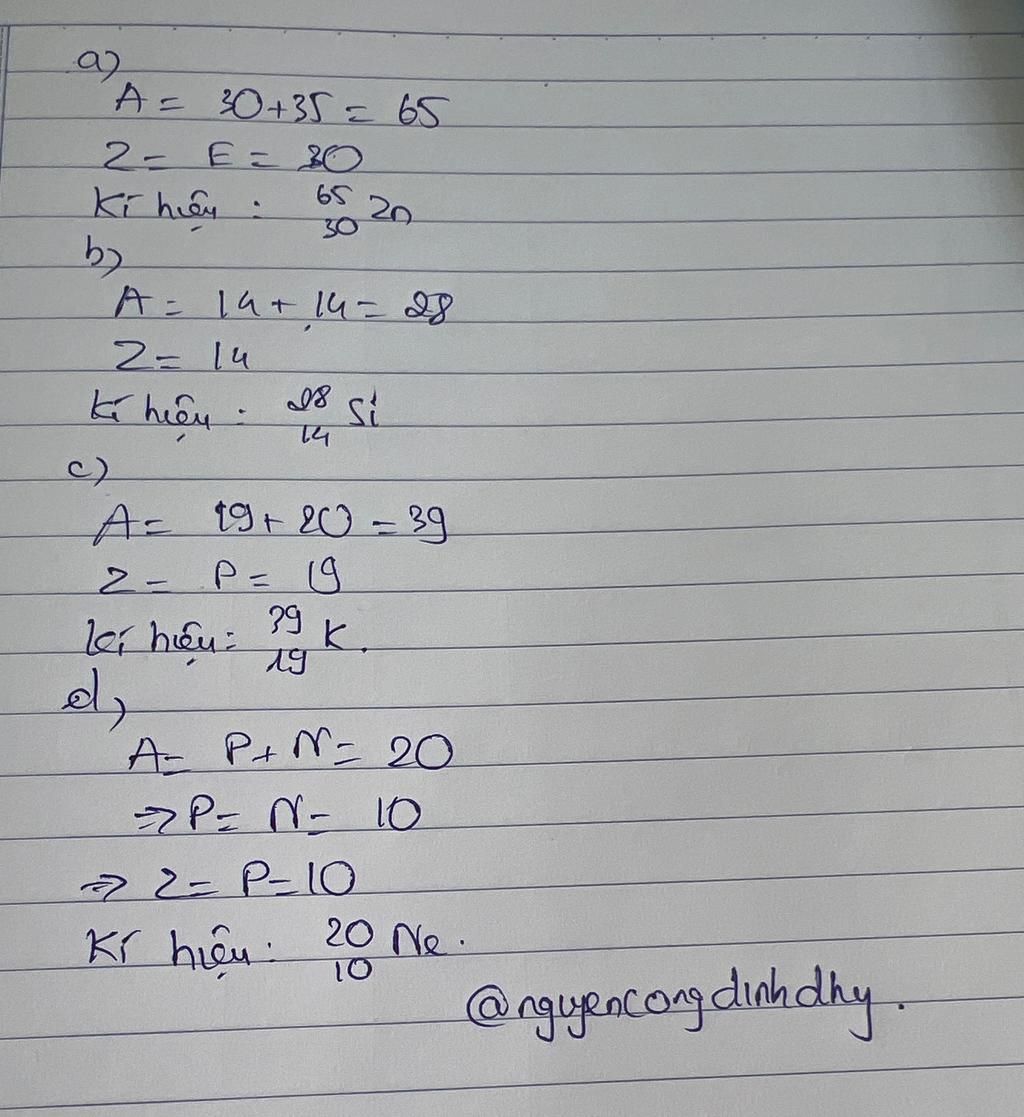 a)
A = 30+35 = 65
Z = E = 30
Kí hiệu : ⁶⁵₃₀Zn
b)
A = 14 + 14 = 28
Z = 14
Kí hiệu : ²⁸₁₄Si
c)
A = 19 + 20 = 39
Z = P = 19
Kí hiệu : ³⁹₁₉K.
d)
A = P + N = 20
⇒ P = N = 10
⇒ Z = P = 10
Kí hiệu : ²⁰₁₀Ne.
@nguyencongdinhdhy.